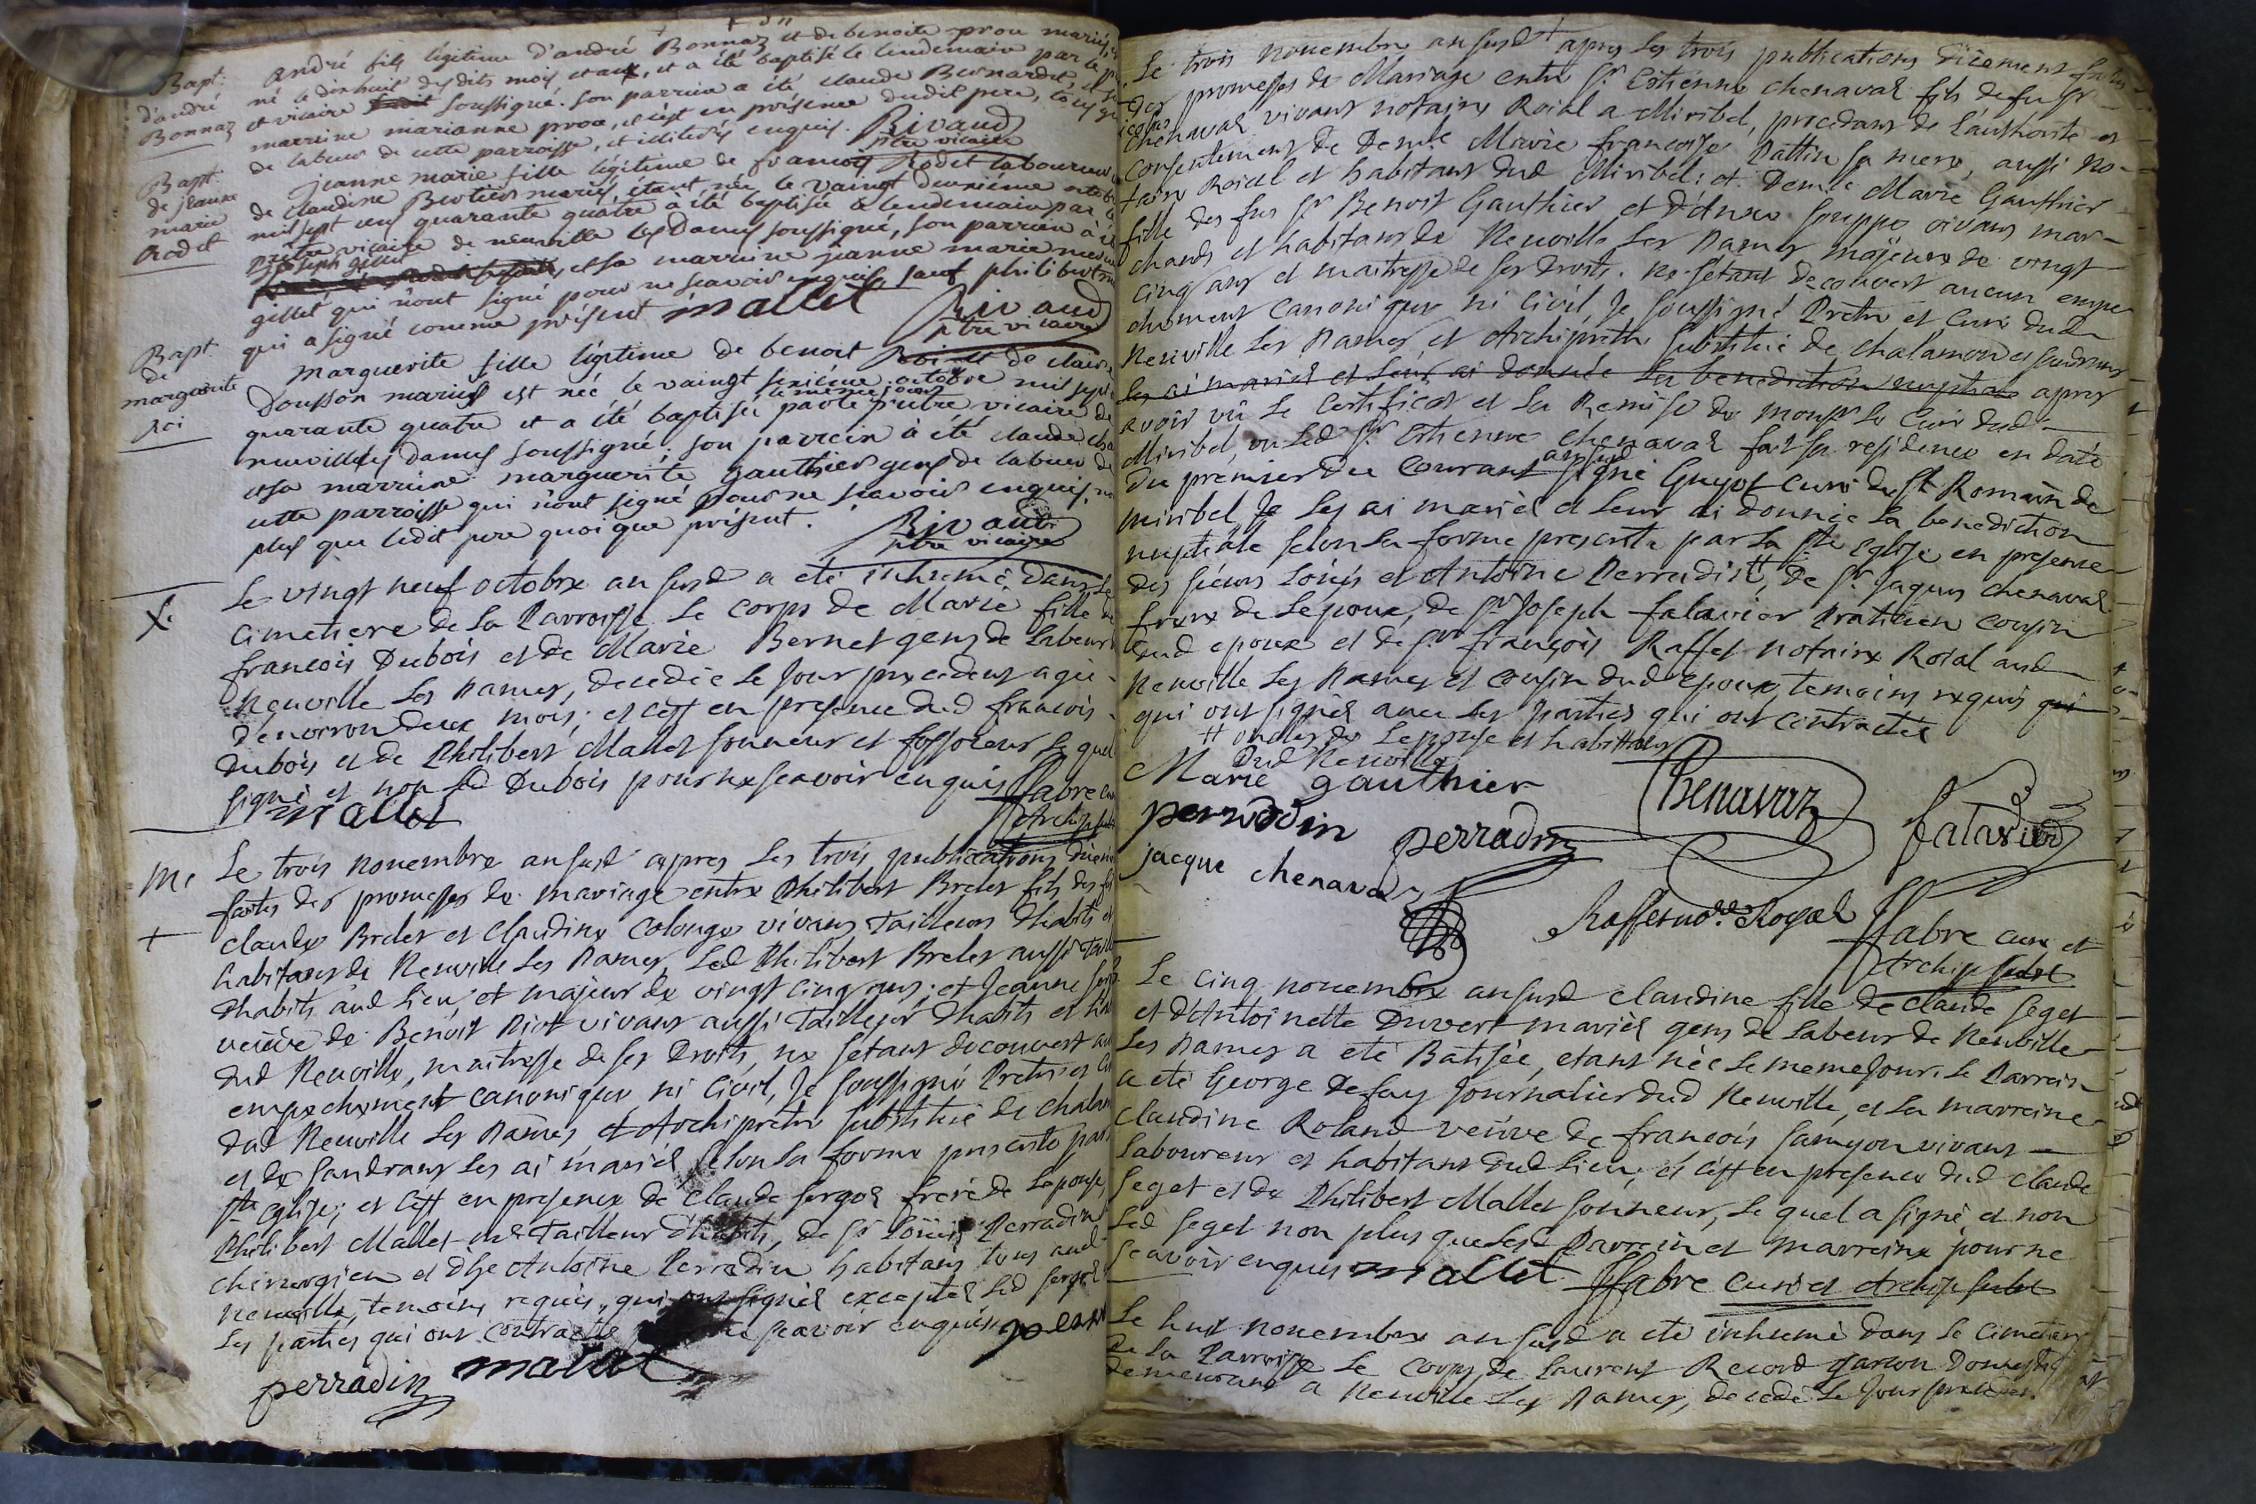 Bapt.
d'andré
Bonnaz
andré fils légitime d'andré Bonnaz et de benoite proa mariés,
né le dixhuit desdits mois et an, et a été baptisé le lendemain par le
et vicaire soussigné. son parrein a été claude Bernardet, et sa
marreine marianne proa, et c'est en présence dudit pere, tous
de labeur de cette parroisse, et illiterés enquis. Rivaud
ptre vicaire
Bapt.
de jeanne
marie
Rodet
jeanne marie fille légitime de françois Rodet laboureur
de claudine Bertier mariés, étant née le vaingt deuxième octobre
mil sept cens quarante quatre a été baptisée le lendemain par le
prêtre vicaire de neuville les Dames soussigné, son parrein a été
joseph gillet
et sa marreine jeanne marie
gillet qui n'ont signé pour ne scavoir enquis, sauf philibert
qui a signé comme présent mallet Rivaud
ptre vicaire
Bapt.
de
marguerite
Roi
marguerite fille légitime de benoit Roi et de claire
Dousson mariés est née le vaingt sixième octobre mil sept
le même jour
quarante quatre et a été baptisée par le prêtre vicaire de
neuville les Dames soussigné; son parrein à été claude
et sa marreine marguerite gauthier gens de labeur de
cette parroisse qui n'ont signé pour ne scavoir enquis, non
plus que ledit pere quoique présent. Rivaud
ptre vicaire
Le vingt neuf octobre an susd a eté inhumé dans le
cimetiere de la Parroisse le corps de Marie fille de
françois Dubois et de Marie Bernet gens de labeur
Neuville les Dames, decedée le jour precedent agée
denviron deux mois; et c'est en presence dud françois
Dubois et de Philibert Mallet sonneur et fossoieur le quel
signé et non led Dubois pour ne scavoir enquis ffabre curé
mallet Archip subst
M.
+
Le trois novembre an susd apres les trois publications düement
faites des promesses de mariage entre Philibert Brelet fils des feu
claude Brelet et claudine Colonge vivans Tailleurs d'habits et
habitans de Neuville les Dames, led Philibert Brelet aussi Tailleur
d'habits aud lieu et majeur de vingt cinq ans; et jeanne
veuve de Benoit Riot vivant aussi Tailleur d'habits et
dud Neuville, maitresse de ses Droits, ne setant decouvert aucun
empechement canonique ni civil, je soussigné Pretre et curé
dud Neuville les Dames et Archipretre substitué de chalamon
et de sandrans les ai mariés selon la forme prescrite par la
ste Eglise; et c'est en presence de claude frere de lepouse,
Philibert Mallet Tailleur d'habits, de sr Loüis Perradin
chirurgien et d'he Antoine Perradin habitans tous aud
Neuville, temoins requis, qui ont signés excepté led
les parties qui ont contracté scavoir enquis
perradin mallet
Le trois novembre an susd apres les trois publications düement faites
des promesses de Mariage entre sr Estienne chenaval fils de feu sr
chenaval vivant notaire Roial a Miribel, procedant de l'authorité et
consentement de Demle Marie françoise Pattin sa mere, aussi no-
taire Roial et habitant dud Miribel; et Demle Marie Gauthier
fille des feus sr Benoit Gauthier et d'Anne vivans mar-
chands et habitans de Neuville les Dames majeure de vingt
cinq ans et maitresse de ses droits. ne setant decouvert aucun empe
chement canonique ni civil, je soussigné Pretre et curé dud
Neuville les Dames et Archipretre substitué de chalamon et sandrans
les ai mariés et leur ai donnée la benediction nuptiale apres
avoir vû le certificat et la Remise de monsr le curé dud
Miribel, ou led sr Estienne chenaval fait sa residence en date
du premier du courant an susd signé Guyot curé de St Romain de
miribel je les ai mariés et leur ai donnée la benediction
nuptiale selon la forme prescrite par la ste Eglise en presence
des sieurs Loüis et Antoine Perradin, de sr jaques chenaval
frere de lepoux, de sr joseph falavier Praticien cousin
dud epoux et de sr françois Raffet notaire Roial aud
Neuville les Dames et cousin dud epoux, temoins requis qui
qui ont signés avec les parties qui ont contractés
# oncles de lepouse et habitans
dud Neuville
Marie gauthier Chenavaz
perradin perradin falavier
jacque chenaval
Raffet nore Royal ffabre curé et
Archip subst
Le cinq novembre an susd claudine fille de claude seget
et d'Antoinette Duvert mariés gens de labeur de Neuville
les Dames a eté Batisée, etant née le meme jour. Le Parrein
a eté George Defay journalier dud Neuville, et la marreine
claudine Roland veuve de françois vivant
laboureur et habitant dud lieu, et c'est en presence dud claude
seget et de Philibert Mallet sonneur, le quel a signé, et non
led seget non plus que lesd Parrein et marreine pour ne
scavoir enquis mallet ffabre curé et Archip subst
Le huit novembre an susd a eté inhumé dans le cimetiere
de la Parroisse le corps de Laurent Record garcon Domestiq
demeurant a Neuville les Dames, decedé le jour precedent